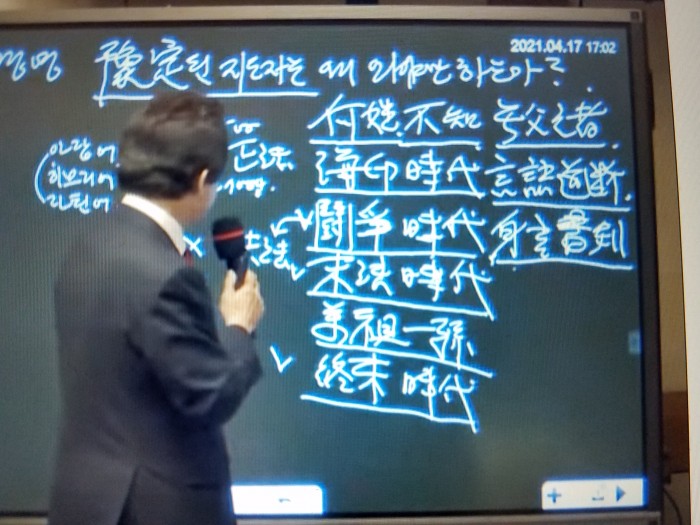 2021.04.17 17:02
豫定된 지도자는 왜 와야만 하는가?
何姓不知 無父之者
아랍어
히브리어
라틴어
正法
海印時代 言語道斷
鬪爭時代 身言書判
末法時代
萬祖一孫
終末時代